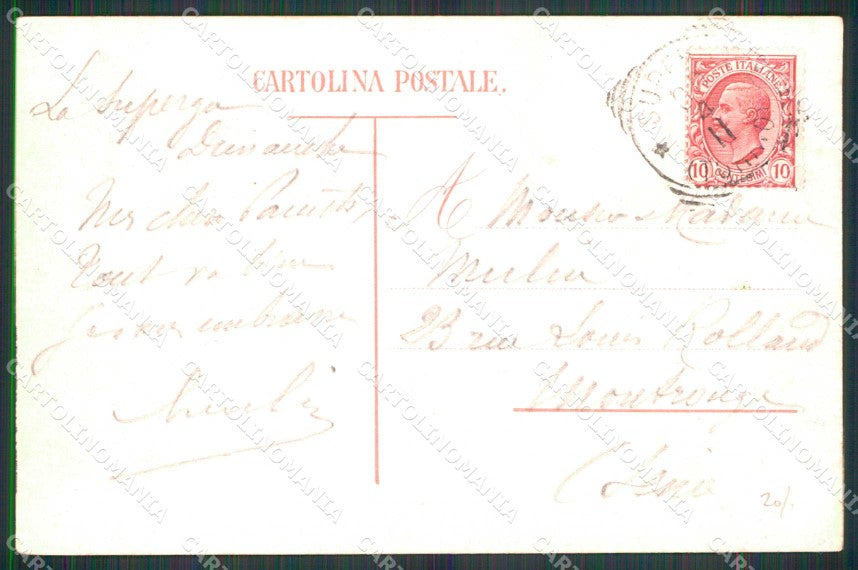 CARTOLINA POSTALE.
La Superga
Dimanche
Mes chers Parents
Tout va bien
Je vous embrasse
A Monsieur Madame
23 rue Louis Rolland
Montrouge
Seine
20/.
POSTE ITALIANE
10 CENTESIMI 10
CARTOLINOMANIA